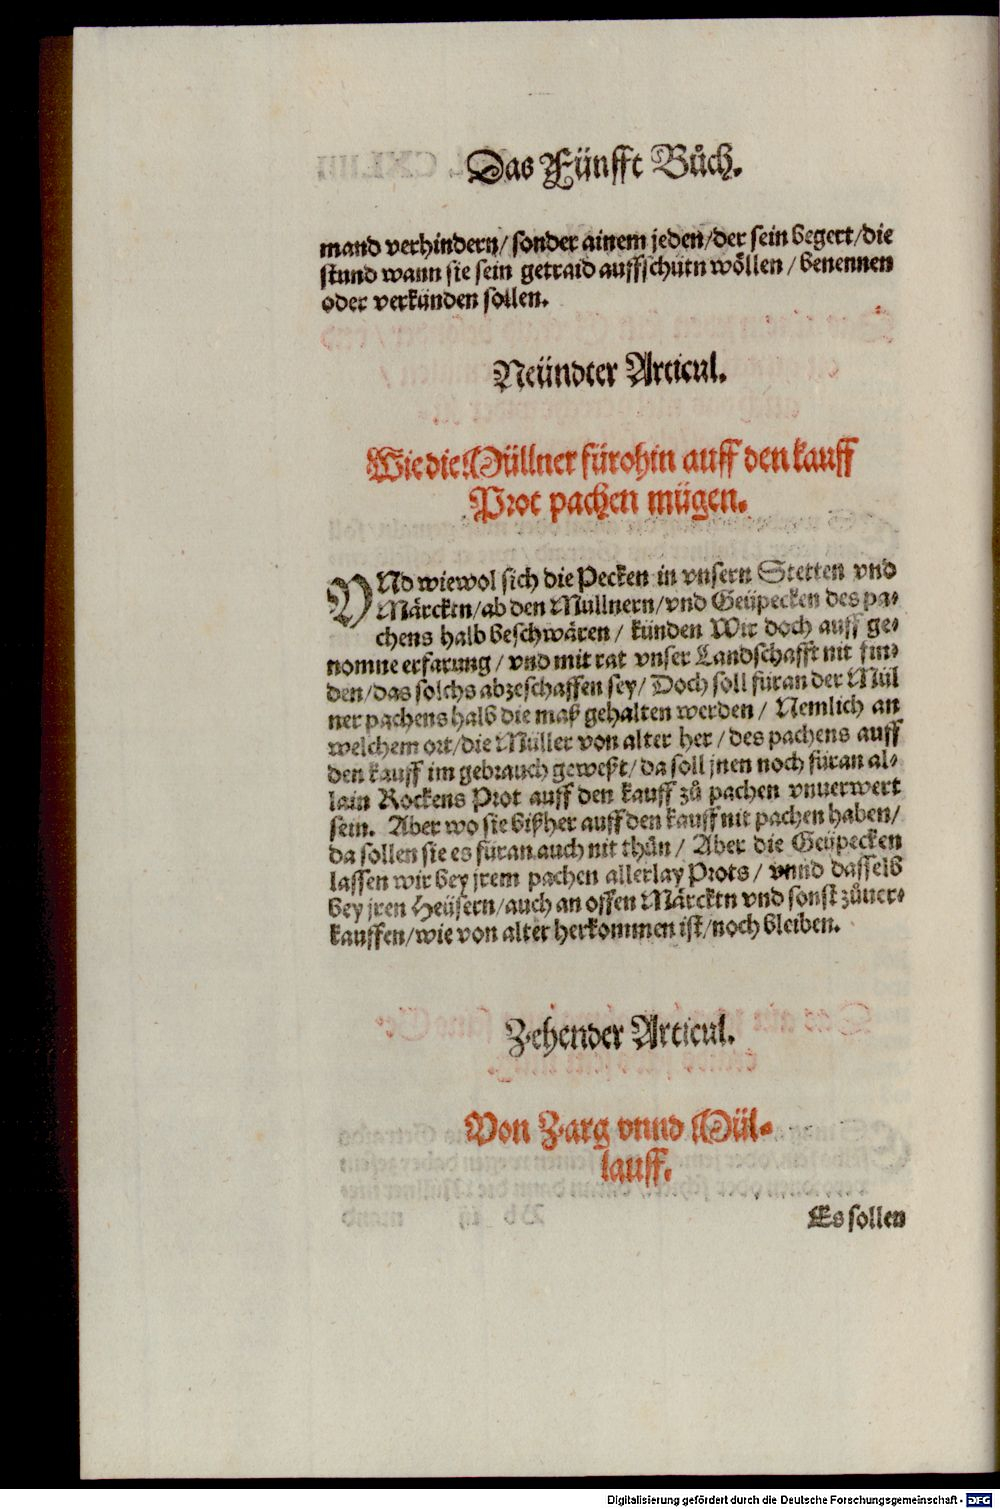 Das Fünfft Bůch.
mand verhindern/ sonder ainem jeden/der sein begert/die
stund wann sie sein getraid auffschütn wöllen / benennen
oder verkünden sollen.
Neündter Articul.
Wie die Müllner fürohin auff den kauff
Prot pachen mügen.
VNd wiewol sich die Pecken in vnsern Stetten vnd
Märcktn/ab den Müllnern/vnd Geüpecken des pa-
chens halb beschwären / künden Wir doch auff ge-
nomne erfarung / vnd mit rat vnser Landschafft nit fin-
den/das solchs abzeschaffen sey/ Doch soll füran der Mül
ner pachens halb die maß gehalten werden / Nemlich an
welchem ort/die Müller von alter her / des pachens auff
den kauff im gebrauch geweßt/ da soll jnen noch füran al-
lain Rockens Prot auff den kauff zů pachen vnuerwert
sein. Aber wo sie bißher auff den kauff nit pachen haben/
da sollen sie es füran auch nit thůn / Aber die Geüpecken
lassen wir bey jrem pachen allerlay Prots / vnnd dasselb
bey jren Heüsern/auch an offen Märcktn vnd sonst zůuer-
kauffen/wie von alter herkommen ist/noch bleiben.
Zehender Articul.
Von Zarg vnnd Mül-
lauff.
Es sollen
Digitalisierung gefördert durch die Deutsche Forschungsgemeinschaft - DFG